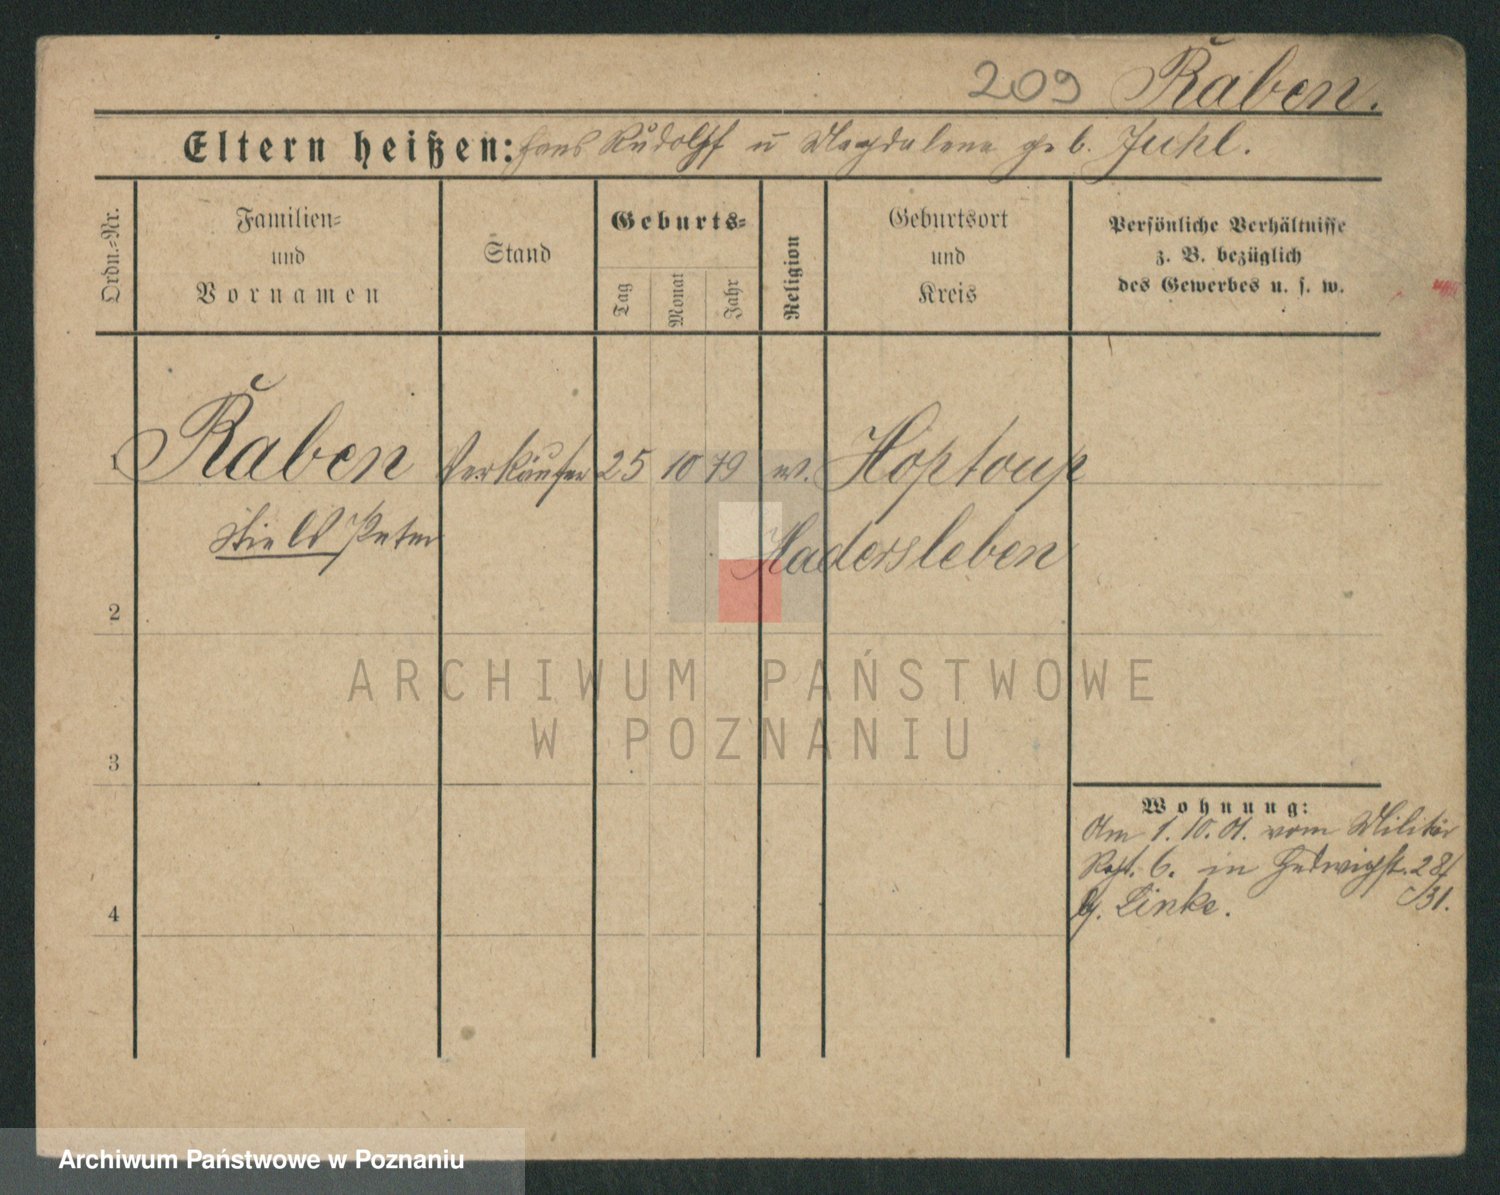 209 Raben.
Eltern heißen: Hans Rudolf u Magdalena geb. Juhl.
Ordn.=Nr.
Familien=
und
Vornamen
Stand
Geburts=
Tag
Monat
Jahr
Religion
Geburtsort
und
Kreis
Persönliche Verhältnisse
z. B. bezüglich
des Gewerbes u. s. w.
1 Raben Verkäufer 25 10 79 ev. Hoptoup
Peter Hadersleben
2
3
4
Wohnung:
Am 1. 10. 01. vom Militär
Regt. 6. in Hedwigst. 28
b/. Linke.
ARCHIWUM PAŃSTWOWE
W POZNANIU
Archiwum Państwowe w Poznaniu